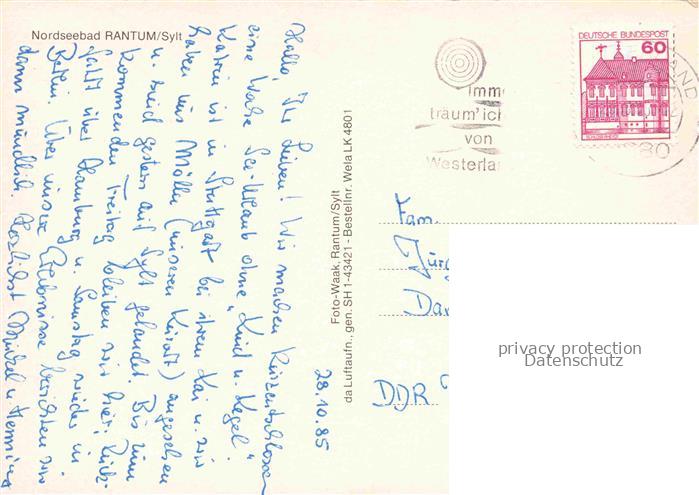 Nordseebad RANTUM/Sylt
Hallo, Ihr Lieben! Wir machen kurzentschlossen
eine Woche See-Urlaub ohne „Kind u. Kegel".
Katrin ist in Stuttgart bei ihrem Kai u. wir
haben uns Mölln (unseren Kurort) angesehen
u. sind gestern auf Sylt gelandet. Bis zum
kommenden Freitag bleiben wir hier, Rück-
fahrt über Hamburg u. Samstag wieder in
Berlin. Über unsere Erlebnisse berichten wir
dann mündlich. Herzlichst u. Henning
28.10.85
Foto-Waak, Rantum/Sylt
da Luftaufn., gen. SH 1-43421 - Bestellnr. Wela LK 4801
Imm
träum' ich
von
Westerla
DEUTSCHE BUNDESPOST
60
80
Fam.
Jür
Da
DDR
privacy protection
Datenschutz